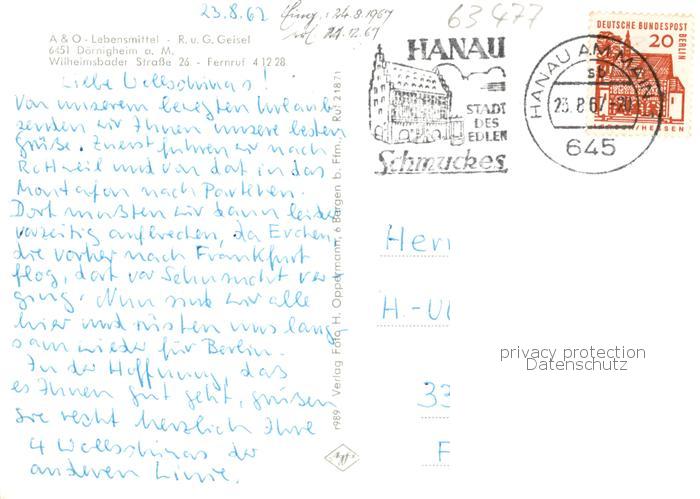 23.8.67
Eing.: 24.8.1967
21.12.67
63477
A & O - Lebensmittel - R. u. G. Geisel
6451 Dörnigheim a. M.
Wilhelmsbader Straße 26 - Fernruf 4 12 28
Liebe Wollschinas!
Von unserem bewegten Urlaub
senden wir Ihnen unsere besten
Grüße. Zuerst fuhren wir nach
Rottweil und von dort in das
Montafon nach Parthenen.
Dort mußten wir dann leider
vorzeitig aufbrechen, da Evchen,
die vorher nach Frankfurt
flog, dort vor Sehnsucht ver-
ging. Nun sind wir alle
hier und rüsten uns lang-
sam wieder für Berlin.
In der Hoffnung, daß
es Ihnen gut geht, grüßen
Sie recht herzlich Ihre
4 Wollschinas der
anderen Linie.
1989 Verlag Foto H. Oppermann, 6 Bergen b. Ffm. Ruf 21871
Agfa
HANAU
STADT
DES
EDLEN
Schmuckes
HANAU AM MAIN
23.8.67-20
645
DEUTSCHE BUNDESPOST
BERLIN
20
HESSEN
Herr
H.-
33
privacy protection
Datenschutz